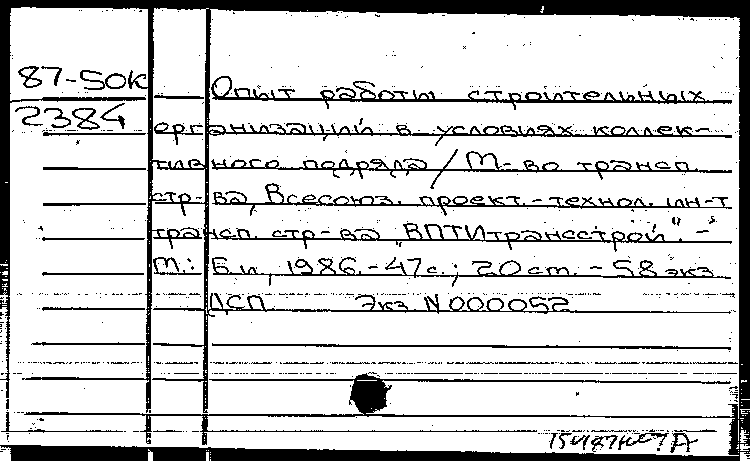 87-50к
2384
Опыт работы строительных
организаций в условиях коллек-
тивного подряда / М-во трансп.
стр-ва, Всесоюз. проект.-технол. ин-т
трансп. стр-ва „ВПТИтрансстрой". -
М.: Б.и., 1986. - 47 с.; 20 cm. - 58 экз
ДСП Экз. N 000052